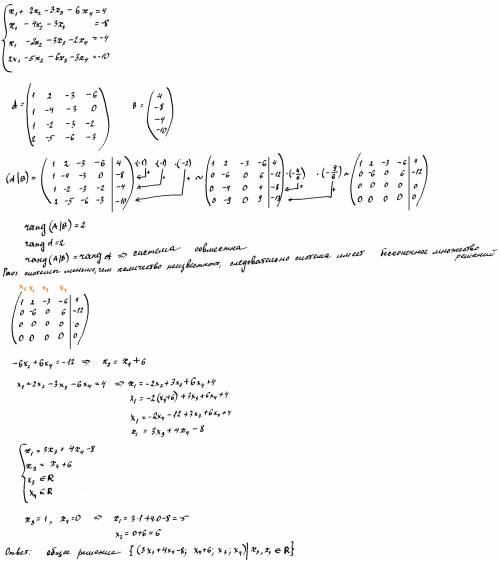 x₁ + 2x₂ - 3x₃ - 6x₄ = 4
x₁ - 4x₂ - 3x₃ = -8
x₁ - 2x₂ - 3x₃ - 2x₄ = -4
2x₁ - 5x₂ - 6x₃ - 3x₄ = -10
A = B =
1 2 -3 -6 4
1 -4 -3 0 -8
1 -2 -3 -2 -4
2 -5 -6 -3 -10
(A|B) = 1 2 -3 -6 | 4 ·(-1) ·(-1) ·(-2) ~ 1 2 -3 -6 | 4 ~ 1 2 -3 -6 | 4
1 -4 -3 0 | -8 + 0 -6 0 6 | -12 ·(-4/6) ·(-9/6) 0 -6 0 6 | -12
1 -2 -3 -2 | -4 + 0 -4 0 4 | -8 + 0 0 0 0 | 0
2 -5 -6 -3 | -10 + 0 -9 0 9 | -18 + 0 0 0 0 | 0
rang (A|B) = 2
rang A = 2
rang (A|B) = rang A ⇒ система совместна
Ранг системы меньше, чем количество неизвестных, следовательно система имеет бесконечное множество решений
x₁ x₂ x₃ x₄
1 2 -3 -6 | 4
0 -6 0 6 | -12
0 0 0 0 | 0
0 0 0 0 | 0
-6x₂ + 6x₄ = -12 ⇒ x₂ = x₄ + 6
x₁ + 2x₂ - 3x₃ - 6x₄ = 4 ⇒ x₁ = -2x₂ + 3x₃ + 6x₄ + 4
x₁ = -2(x₄+6) + 3x₃ + 6x₄ + 4
x₁ = -2x₄ - 12 + 3x₃ + 6x₄ + 4
x₁ = 3x₃ + 4x₄ - 8
x₁ = 3x₃ + 4x₄ - 8
x₂ = x₄ + 6
x₃ ∈ R
x₄ ∈ R
x₃ = 1, x₄ = 0 ⇒ x₁ = 3·1 + 4·0 - 8 = -5
x₂ = 0 + 6 = 6
Ответ: общее решение {(3x₃ + 4x₄ - 8; x₄ + 6; x₃; x₄) | x₃, x₄ ∈ R}